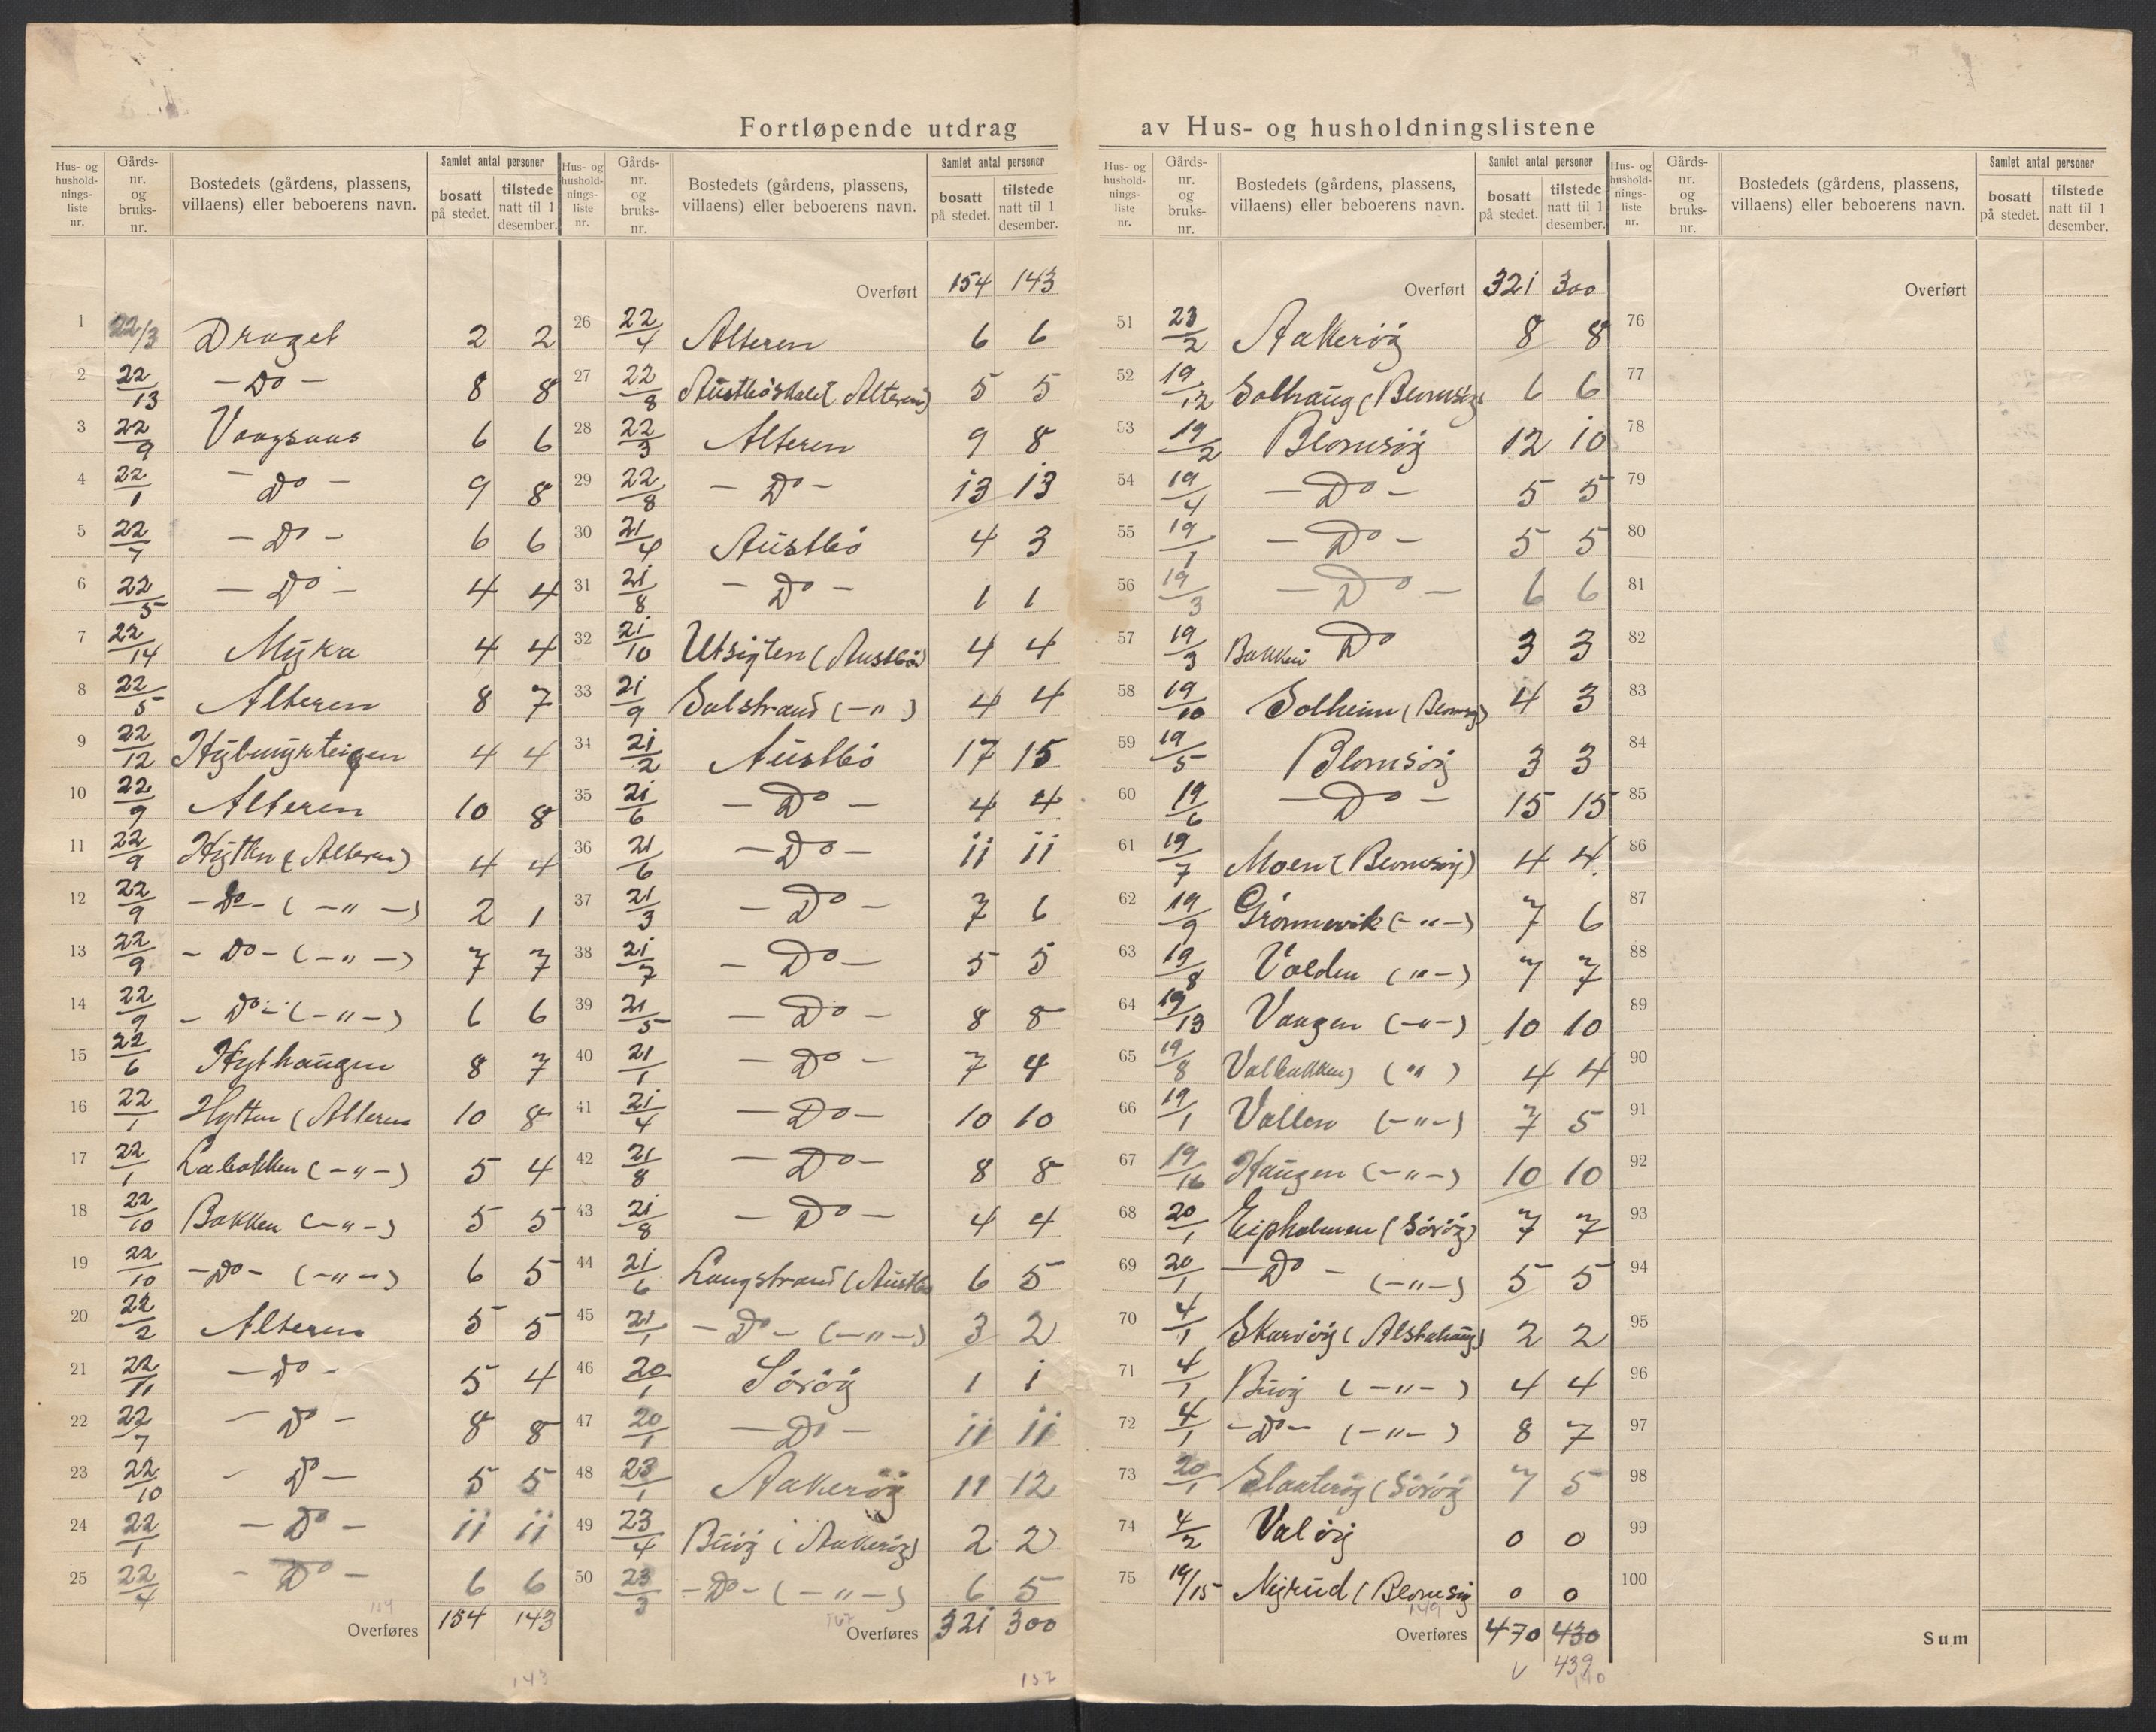 Fortløpende utdrag av Hus- og husholdningslistene
Hus- og hushold-nings-liste nr. | Gårds-nr. og bruks-nr. | Bostedets (gårdens, plassens, villaens) eller beboerens navn. | Samlet antal personer | bosatt på stedet. | tilstede natt til 1 desember.
1 22/3 Draget 2 2
2 22/13 - Do - 8 8
3 22/9 Vaagsaas 6 6
4 22/1 - Do - 9 8
5 22/7 - Do - 6 6
6 22/5 - Do - 4 4
7 22/14 Myra 4 4
8 22/5 Alteren 8 7
9 22/12 Hytmyrteigen 4 4
10 22/9 Alteren 10 8
11 22/9 Hytten (Alteren) 4 4
12 22/9 - Do - ( - " - ) 2 1
13 22/9 - Do - ( - " - ) 7 7
14 22/9 - Do - ( - " - ) 6 6
15 22/6 Hythaugen 8 7
16 22/1 Hytten (Alteren 10 8
17 22/1 Labakken ( - " - ) 5 4
18 22/10 Bakken ( - " - ) 5 5
19 22/10 - Do - ( - " - ) 6 5
20 22/2 Alteren 5 5
21 22/11 - Do - 5 4
22 22/7 - Do - 8 8
23 22/10 - Do - 5 5
24 22/1 - Do - 11 11
25 22/4 - Do - 6 6
154
Overføres 154 143
143
Hus- og hushold-nings-liste nr. | Gårds-nr. og bruks-nr. | Bostedets (gårdens, plassens, villaens) eller beboerens navn. | Samlet antal personer | bosatt på stedet. | tilstede natt til 1 desember.
Overført 154 143
26 22/4 Alteren 6 6
27 22/8 (Alteren) 5 5
28 22/3 Alteren 9 8
29 22/8 - Do - 13 13
30 21/4 Austbö 4 3
31 21/8 - Do - 1 1
32 21/10 Utsigten (Austbö) 4 4
33 21/9 Solstrand ( - " ) 4 4
34 21/2 Austbö 17 15
35 21/6 - Do - 4 4
36 21/6 - Do - 11 11
37 21/3 - Do - 7 6
38 21/7 - Do - 5 5
39 21/5 - Do - 8 8
40 21/1 - Do - 7 4
41 21/4 - Do - 10 10
42 21/8 - Do - 8 8
43 21/8 - Do - 4 4
44 21/6 Langstrand (Austbö 6 5
45 21/1 - Do - ( - " - ) 3 2
46 20/1 Söröy 1 1
47 20/1 - Do - 11 11
48 23/1 Aakeröy 11 12
49 23/4 Buöy (Aakeröy) 2 2
50 23/3 - Do - ( - " - ) 6 5
167
Overføres 321 300
157
Hus- og hushold-nings-liste nr. | Gårds-nr. og bruks-nr. | Bostedets (gårdens, plassens, villaens) eller beboerens navn. | Samlet antal personer | bosatt på stedet. | tilstede natt til 1 desember.
Overført 321 300
51 23/2 Aakeröy 8 8
52 19/12 Solhaug (Blomsöy) 6 6
53 19/2 Blomsöy 12 10
54 19/4 - Do - 5 5
55 19/1 - Do - 5 5
56 19/3 - Do - 6 6
57 19/3 Bakken Do 3 3
58 19/10 Solheim (Blomsöy) 4 3
59 19/5 Blomsöy 3 3
60 19/6 - Do - 15 15
61 19/7 Moen (Blomsöy) 4 4
62 19/9 Grönnevik ( - " - ) 7 6
63 19/8 Volden ( " - ) 7 7
64 19/13 Vaagen ( - " - ) 10 10
65 19/8 Valbakken) ( " ) 4 4
66 19/1 Vollen ( - " - ) 7 5
67 19/16 Haugen ( - " - ) 10 10
68 20/1 Eipholmen (Söröy) 7 7
69 20/1 - Do - ( - " - ) 5 5
70 4/1 Skarvöy (Alstahaug) 2 2
71 4/1 Buöy ( - " - ) 4 4
72 4/1 - Do - ( - " - ) 8 7
73 20/1 Slaateröy (Söröy 7 5
74 4/2 Valöy 0 0
75 19/15 Nyrud (Blomsöy 0 0
149
Overføres 470 430
V 439
140
Hus- og hushold-nings-liste nr. | Gårds-nr. og bruks-nr. | Bostedets (gårdens, plassens, villaens) eller beboerens navn. | Samlet antal personer | bosatt på stedet. | tilstede natt til 1 desember.
Overført
76
77
78
79
80
81
82
83
84
85
86
87
88
89
90
91
92
93
94
95
96
97
98
99
100
Sum